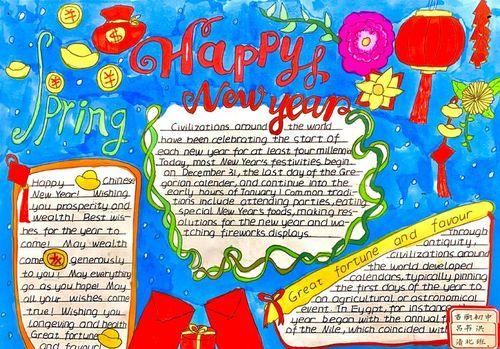 Happy
New year
Spring
Civilizations around the world
have been celebrating the start of
each new year for at least four millennia.
Today, most New Year's festivities begin
on December 31, the last day of the Gre-
gorian calender, and continue into the
early hours of January 1. Common tradi-
tions include attending parties, eating
special New Year's foods, making res-
olutions for the new year and wa-
tching fireworks displays.
Happy Chinese
New Year! Wishing
you prosperity and
wealth! Best wis-
hes for the year to
come! May wealth
come generously
to you! May everything
go as you hope! May
all your wishes come
true! Wishing you
longeving and health
Great fortune
and favour!
Great fortune and favour
Through
antiquity,
civilizations around
the world developed
calendars, typically pinning
the first days of the year to
an agricultural or astronomical
event. In Eygpt, for instance
year began with the annual f
of the Nile, which coincided with
初中
吕书洪
清北班